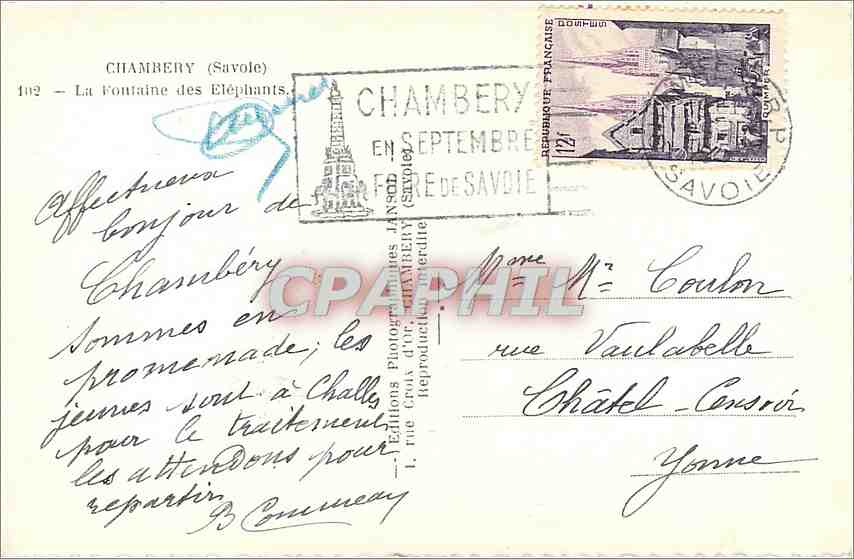 CHAMBERY (Savoie)
102 — La Fontaine des Eléphants.
CHAMBERY
EN SEPTEMBRE
FOIRE DE SAVOIE
REPUBLIQUE FRANÇAISE
POSTES
12f
QUIMPER
R.P.
SAVOIE
Affectueux
bonjour de
Chambéry
sommes en
promenade, les
jeunes sont à Challes
pour le traitement
les attendons pour
repartir
B Commeau
Editions Photographiques JANSOL —
1, rue Croix d'Or, CHAMBERY (Savoie)
Reproduction interdite
CPAPHIL
Mme Mr Coulon
rue Vaulabelle
Châtel-Censoir
Yonne